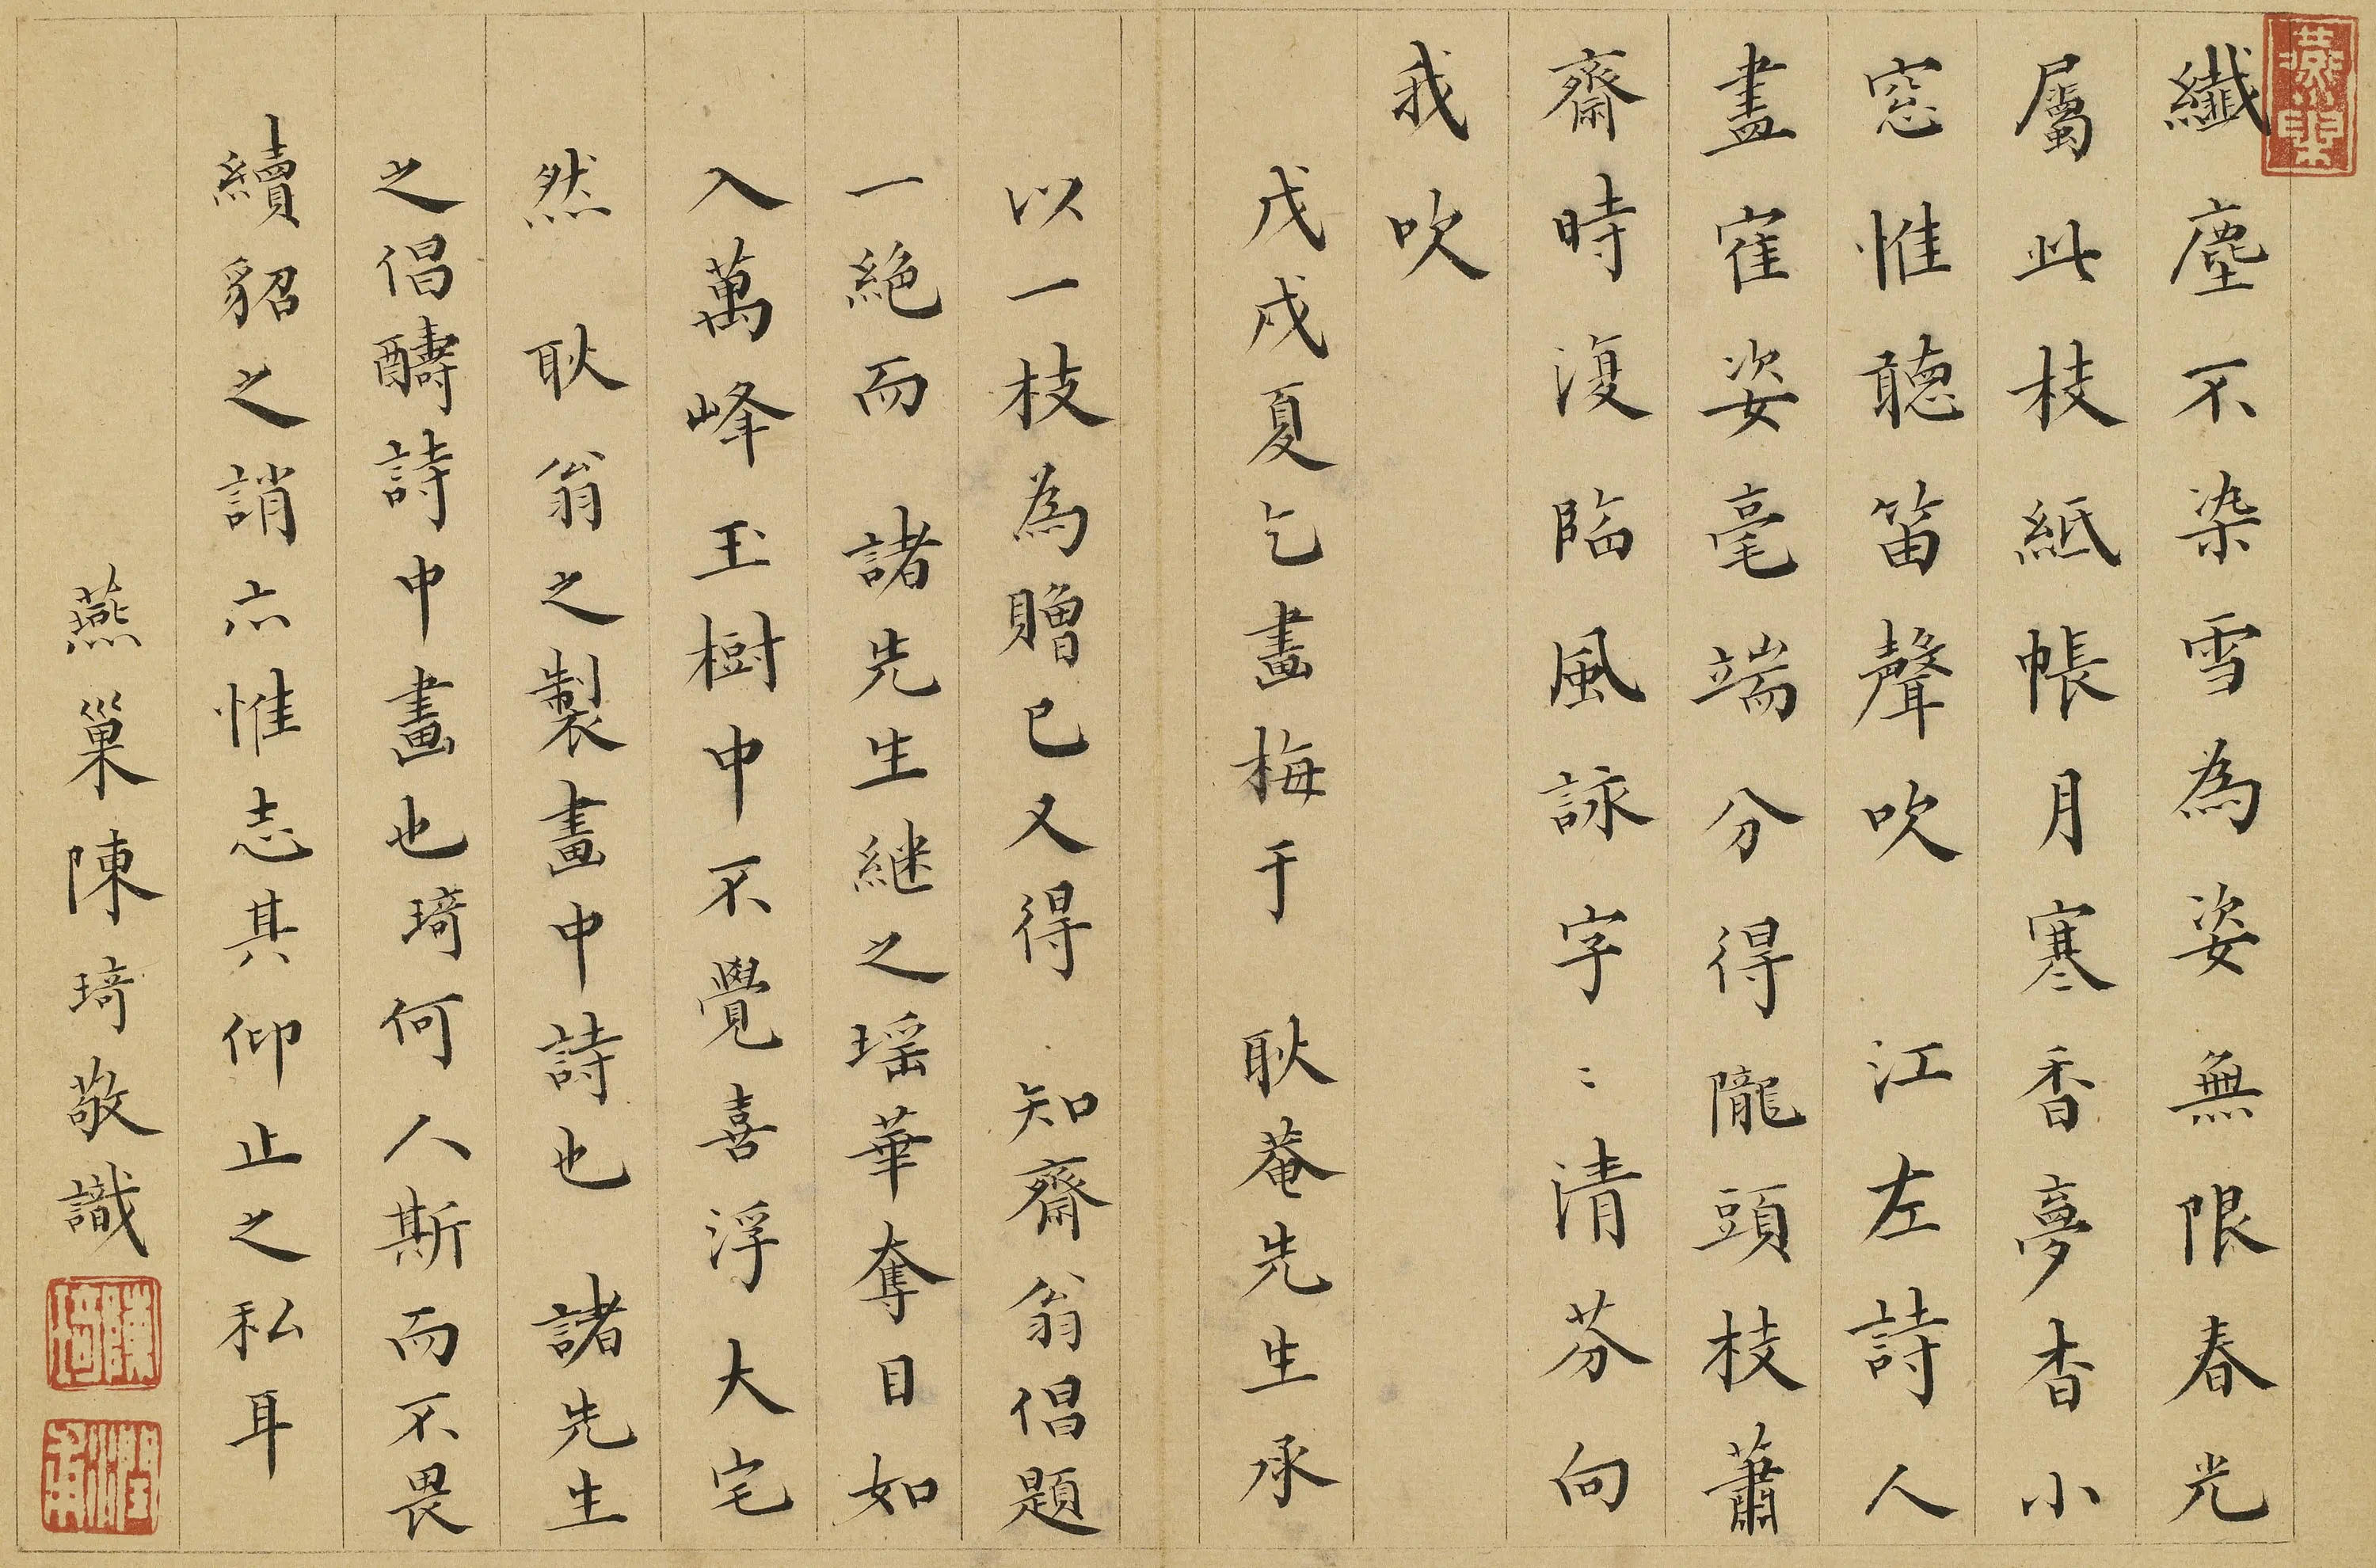 燕巢
纖塵不染雪為姿無限春光
屬此枝紙帳月寒香夢杳小
窓惟聽笛聲吹 江左詩人
畫寉姿毫端分得隴頭枝蕭
齋時復臨風詠字〻清芬向
我吹
戊戌夏乞畫梅于 耿菴先生承
以一枝為贈已又得 知齋翁倡題
一絕而 諸先生継之瑶華奪目如
入萬峰玉樹中不覺喜浮大宅
然 耿翁之製畫中詩也 諸先生
之倡酬詩中畫也琦何人斯而不畏
續貂之誚亦惟志其仰止之私耳
燕巢陳琦敬識
陳琦